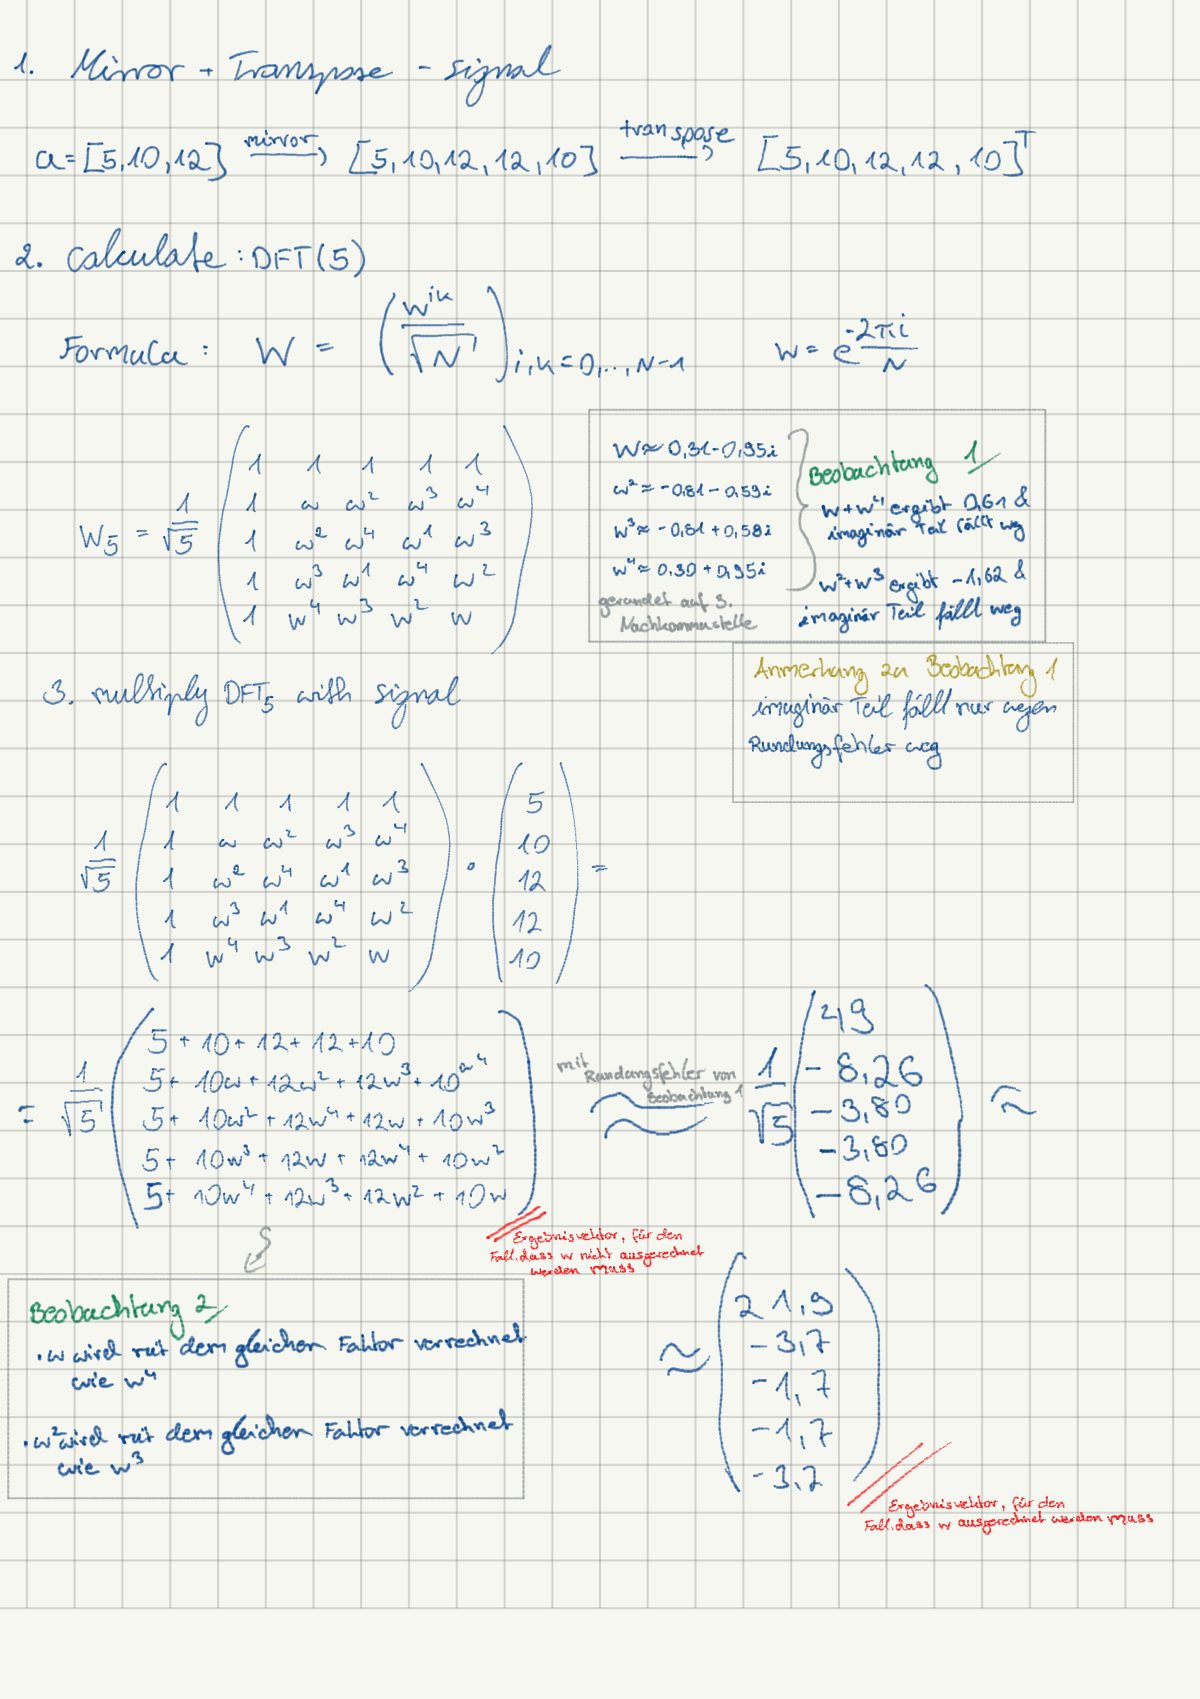 1. Mirror + Transpose - signal
a = [5,10,12] mirror→ [5,10,12,12,10] transpose→ [5,10,12,12,10]ᵀ
2. Calculate: DFT(5)
Formula: W = (w^ik / √N) i,k=0,...,N-1 w = e^(-2πi / N)
W₅ = 1/√5
1 1 1 1 1
1 w w² w³ w⁴
1 w² w⁴ w¹ w³
1 w³ w¹ w⁴ w²
1 w⁴ w³ w² w
w ≈ 0,31-0,95i
w² ≈ -0,81-0,59i
w³ ≈ -0,81+0,58i
w⁴ ≈ 0,30+0,95i
gerundet auf 3.
Nachkommastelle
Beobachtung 1
w+w⁴ ergibt 0,61 &
imaginär Teil fällt weg
w²+w³ ergibt -1,62 &
imaginär Teil fällt weg
Anmerkung zu Beobachtung 1
imaginär Teil fällt nur wegen
Rundungsfehler weg
3. multiply DFT₅ with signal
1/√5
1 1 1 1 1
1 w w² w³ w⁴
1 w² w⁴ w¹ w³
1 w³ w¹ w⁴ w²
1 w⁴ w³ w² w
·
5
10
12
12
10
=
= 1/√5
5 + 10 + 12 + 12 + 10
5 + 10w + 12w² + 12w³ + 10w⁴
5 + 10w² + 12w⁴ + 12w + 10w³
5 + 10w³ + 12w + 12w⁴ + 10w²
5 + 10w⁴ + 12w³ + 12w² + 10w
mit
Rundungsfehler von
Beobachtung 1
≈
1/√5
49
-8,26
-3,80
-3,80
-8,26
≈
Ergebnisvektor, für den
Fall, dass w nicht ausgerechnet
werden muss
Beobachtung 2
· w wird mit dem gleichen Faktor verrechnet
wie w⁴
· w² wird mit dem gleichen Faktor verrechnet
wie w³
≈
21,9
-3,7
-1,7
-1,7
-3,7
Ergebnisvektor, für den
Fall, dass w ausgerechnet werden muss